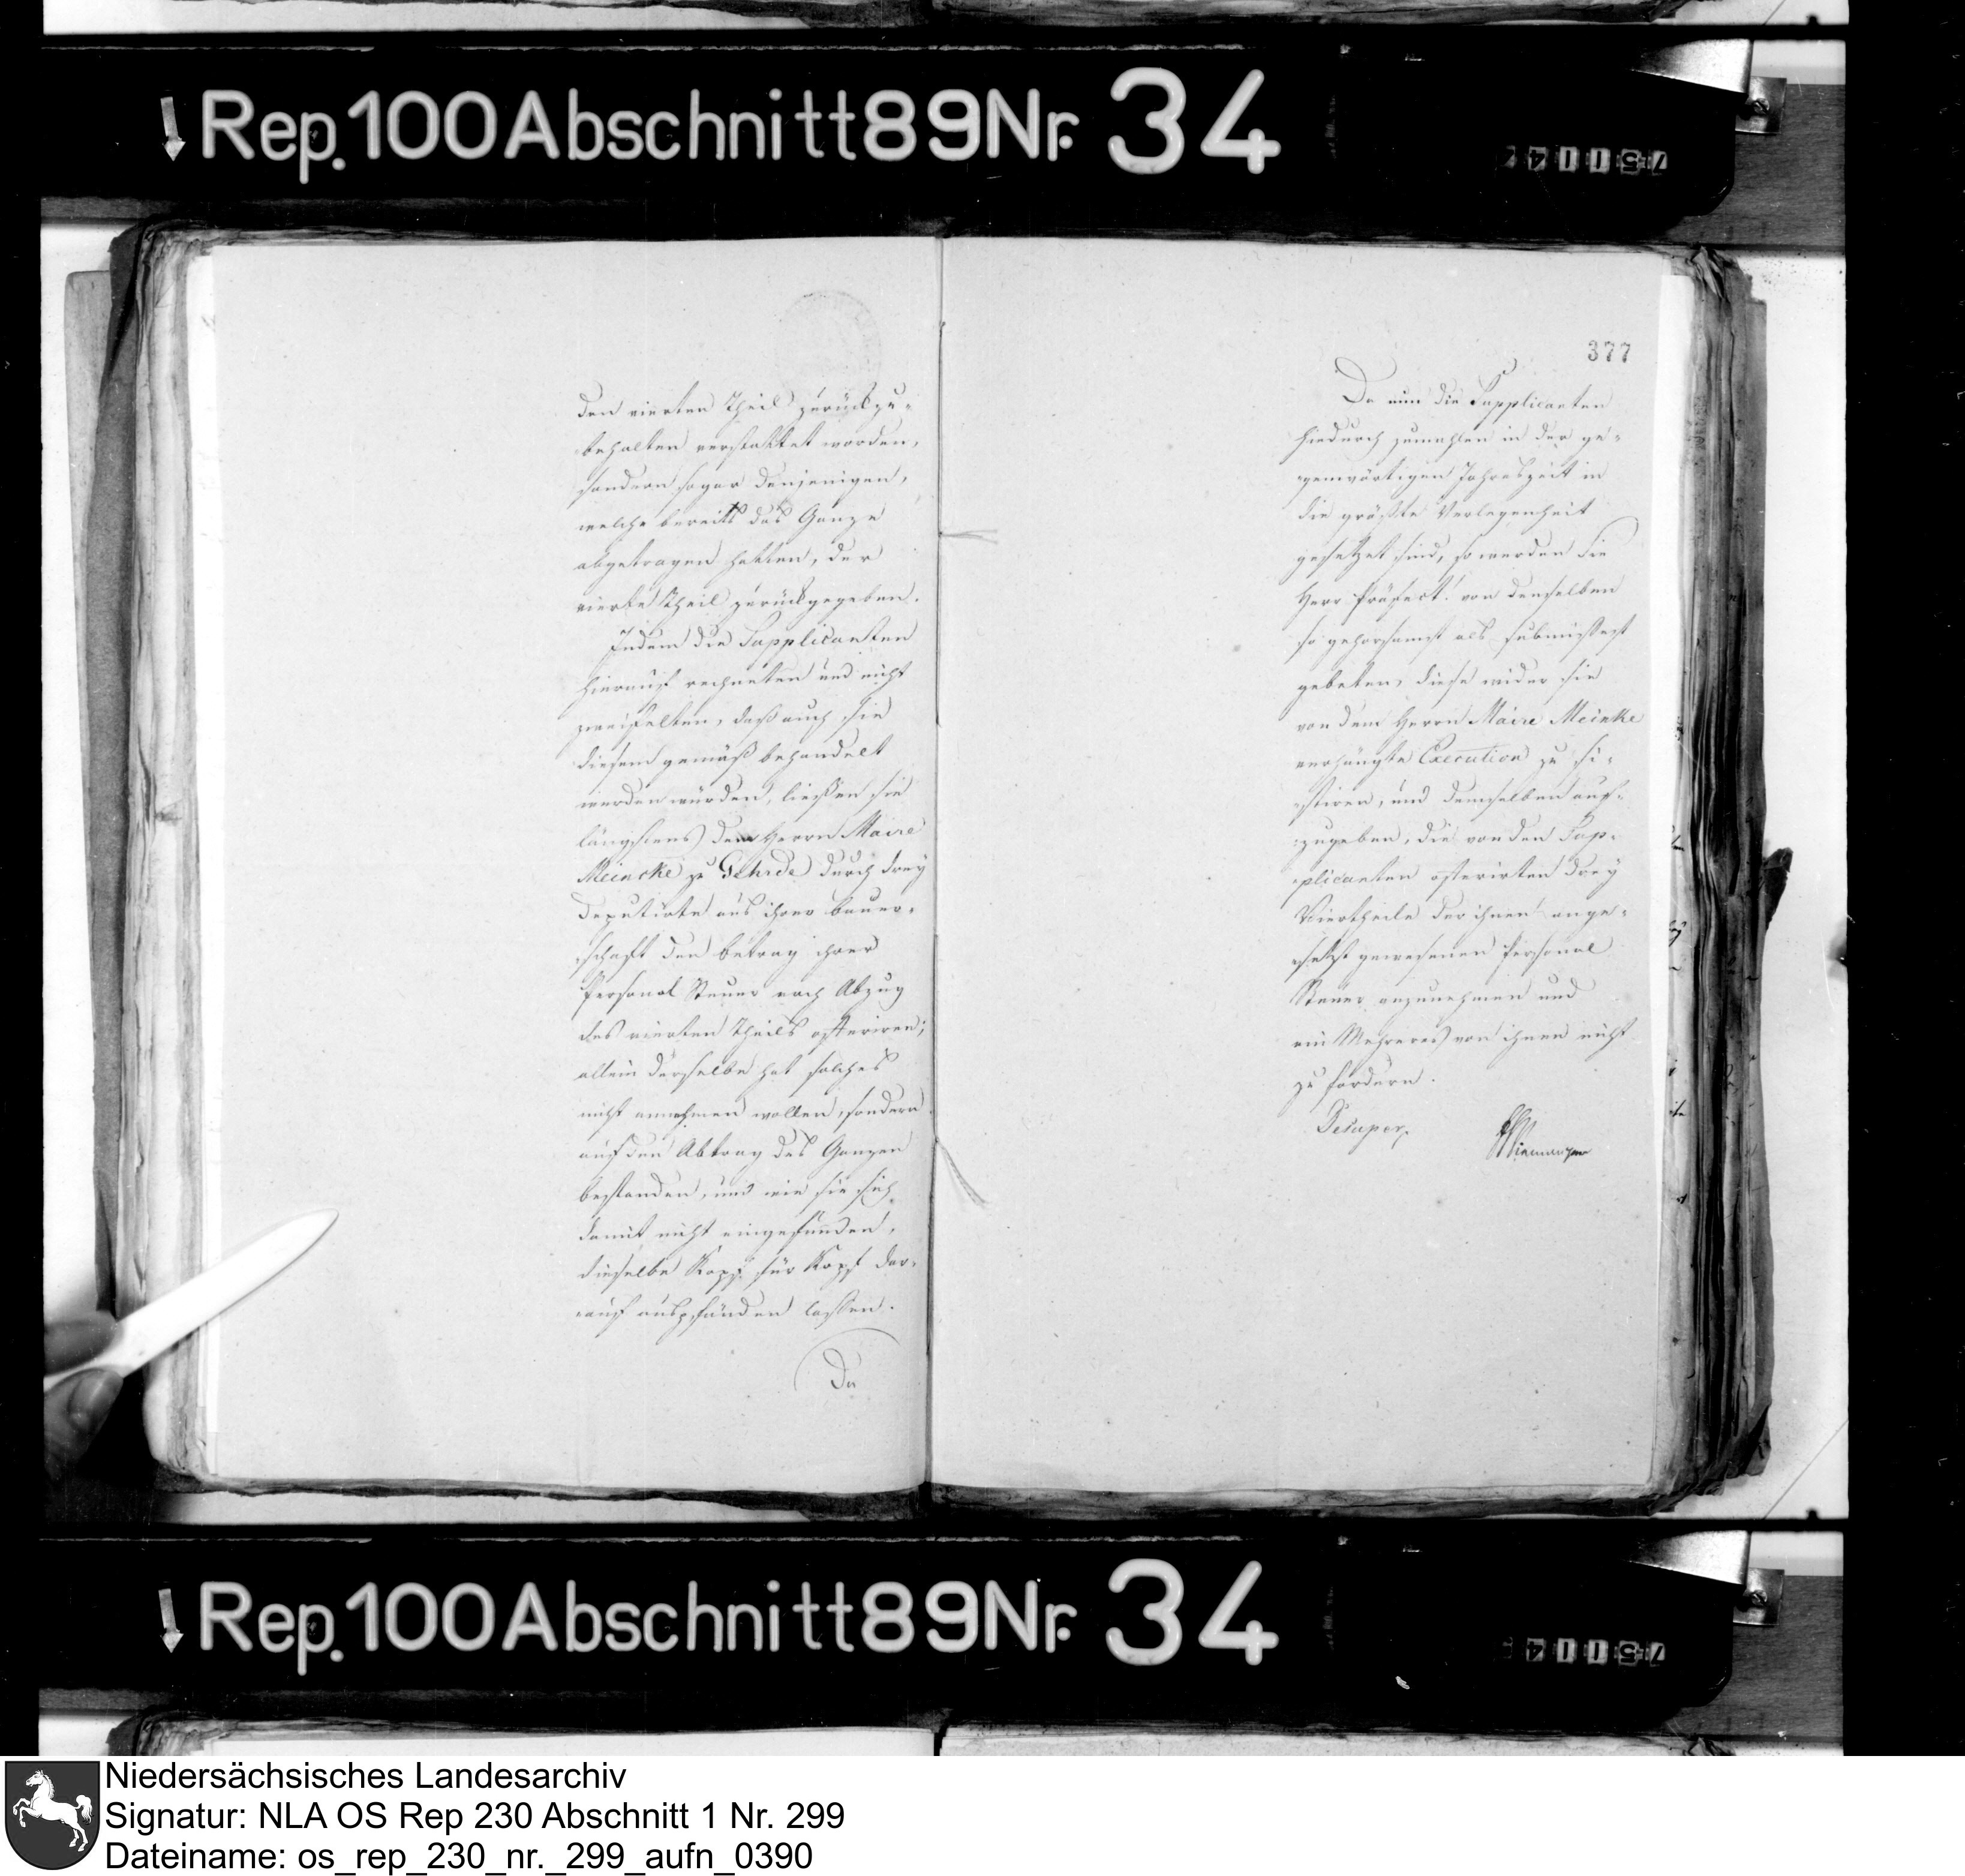 Rep. 100 Abschnitt 89 Nr. 34
den vierten Theil zurückzu-
behalten verstattet worden,
sondern sogar denjenigen,
welche bereits das Ganze
abgetragen hatten, der
vierte Theil zurückgegeben.
Indem die Supplicanten
hierauf rechneten und nicht
zweifelten, daß auch sie
diesem gemäß behandelt
werden würden, ließen sie
längstens dem Herrn Maire
Meincke zu Gehrde durch drey
Deputirte aus ihrer Bauer-
schaft den Betrag ihrer
Personal Steuer nach Abzug
des vierten Theils offeriren;
allein derselbe hat solches
nicht annehmen wollen, sondern
auf den Abtrag des Ganzen
bestanden, und wie sie sich
damit nicht eingefunden,
dieselbe Kopf für Kopf dar-
auf auspfänden lassen.
Da
377
Da nun die Supplicanten
hiedurch zumahlen in der ge-
genwärtigen Jahreszeit in
die größte Verlegenheit
gesetzet sind, so werden Sie
Herr Präfect! von denselben
so gehorsamst als submissest
gebeten, diese wider sie
von dem Herrn Maire Meinke
verhängte Execution zu si-
stiren, und demselben auf-
zugeben, die von den Sup-
plicanten offerirten drey
Viertheile der ihnen ange-
setzt gewesenen Personal
Steuer anzunehmen und
ein Mehreres von ihnen nicht
zu fordern.
Desuper.
Rep. 100 Abschnitt 89 Nr. 34
Niedersächsisches Landesarchiv
Signatur: NLA OS Rep 230 Abschnitt 1 Nr. 299
Dateiname: os_rep_230_nr._299_aufn_0390